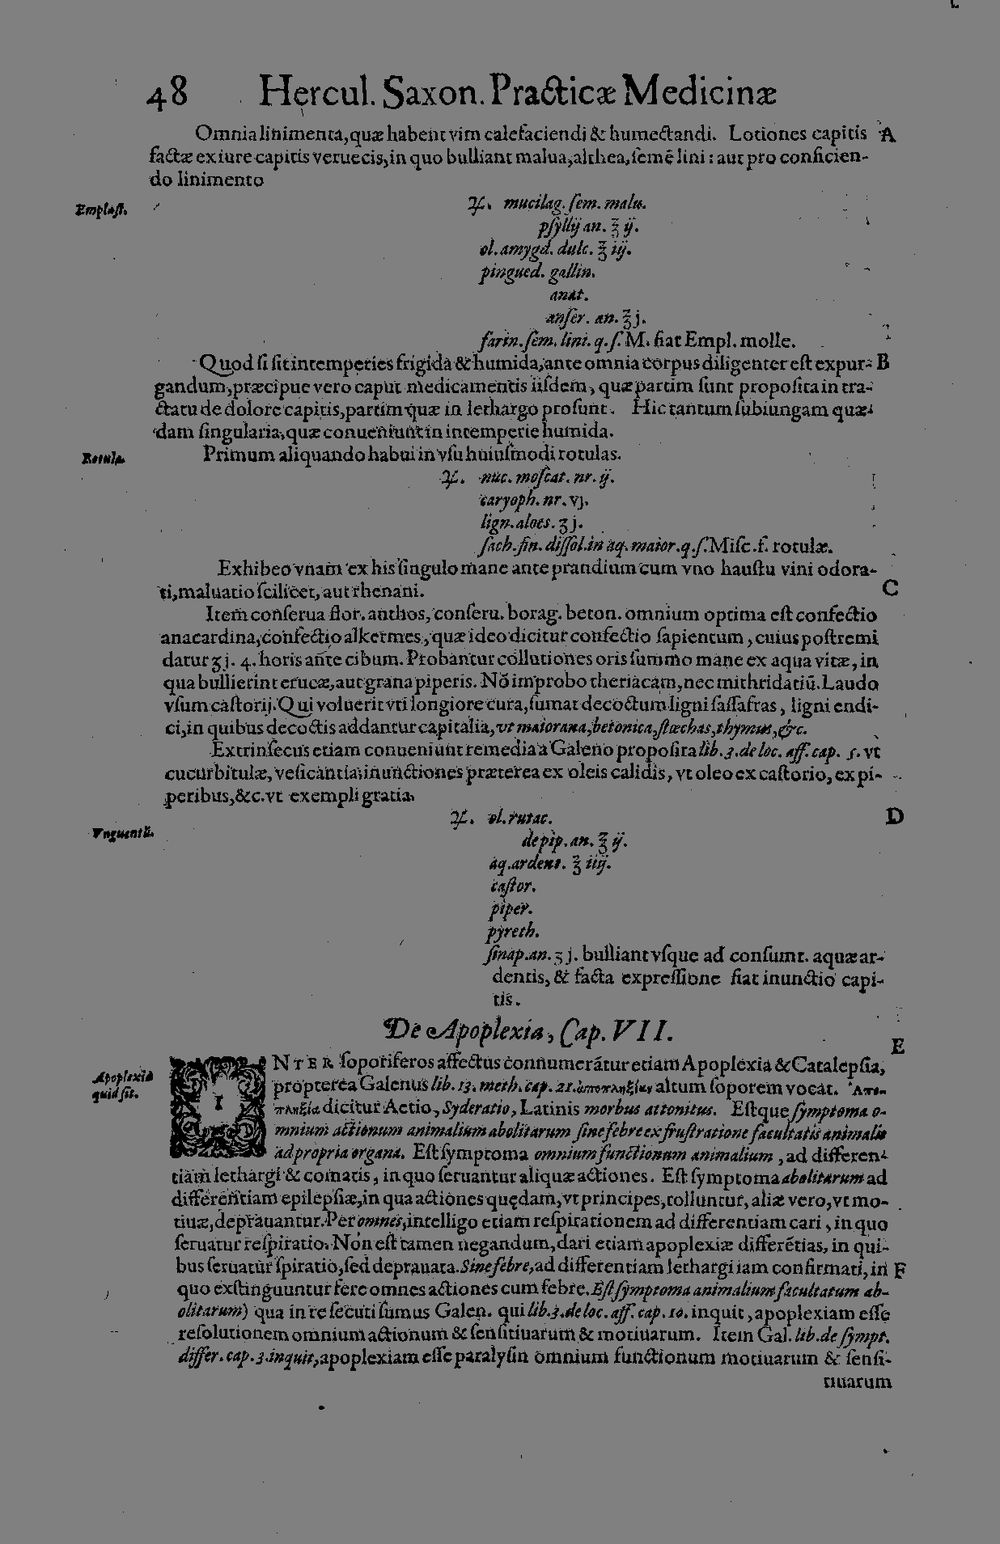 48 Hercul. Saxon. Practicæ Medicinæ
Omnia linimenta, quæ habent vim calefaciendi & humectandi. Lotiones capitis A
factæ ex iure capitis veruecis, in quo bulliant malua, althea, semē lini: aut pro conficien-
do linimento
Emplast.
♃. mucilag. sem. malu.
psyllij an. ℥ ij.
ol. amygd. dulc. ℥ iij.
pingued. gallin.
anat.
anser. an. ℥ j.
farin. sem. lini. q. s. M. fiat Empl. molle.
Quod si sit intemperies frigida & humida, ante omnia corpus diligenter est expur- B
gandum, præcipue vero caput medicamentis iisdem, quæ partim sunt proposita in tra-
ctatu de dolore capitis, partim quæ in lethargo prosunt. Hic tantum subiungam quæ-
dam singularia, quæ conueniunt in intemperie humida.
Rotulæ.
Primum aliquando habui in vsu huiusmodi rotulas.
♃. nuc. moscat. nr. ij.
caryoph. nr. vj.
lign. aloes. ʒ j.
sach. fin. dissol. in aq. maior. q. s. Misc. f. rotulæ.
Exhibeo vnam ex his singulo mane ante prandium cum vno haustu vini odora-
ti, maluatio scilicet, aut rhenani. C
Item conserua flor. anthos, conseru. borag. beton. omnium optima est confectio
anacardina, confectio alkermes, quæ ideo dicitur confectio sapientum, cuius postremi
datur ʒ j. 4. horis ante cibum. Probantur collutiones oris summo mane ex aqua vitæ, in
qua bullierint erucæ, aut grana piperis. Nō improbo theriacam, nec mithridatiū. Laudo
vsum castorij. Qui voluerit vti longiore cura, sumat decoctum ligni sassafras, ligni endi-
ci, in quibus decoctis addantur capitalia, vt maiorana, betonica, stœchas, thymus, &c.
Extrinsecus etiam conueniunt remedia à Galeno proposita lib. 3. de loc. aff. cap. 5. vt
cucurbitulæ, vesicantia; inunctiones præterea ex oleis calidis, vt oleo ex castorio, ex pi-
peribus, &c. vt exempli gratia,
Vnguentū.
♃. ol. rutac. D
de pip. an. ℥ ij.
aq. ardent. ℥ iiij.
castor.
piper.
pyreth.
sinap. an. ʒ j. bulliant vsque ad consumt. aquæ ar-
dentis, & facta expressione fiat inunctio capi-
tis.
De Apoplexia, Cap. VII.
E
Apoplexia
quid sit.
INTER soporiferos affectus connumerātur etiam Apoplexia & Catalepsia,
propterea Galenus lib. 13. meth. cap. 21. ἀποπληξίαν altum soporem vocat. Ἀπο-
πληξία dicitur Aetio, Syderatio, Latinis morbus attonitus. Estque symptoma o-
mnium actionum animalium abolitarum sine febre ex frustratione facultatis animalis
ad propria organa. Est symptoma omnium functionum animalium, ad differen-
tiam lethargi & comatis, in quo seruantur aliquæ actiones. Est symptoma abolitarum ad
differentiam epilepsiæ, in qua actiones quędam, vt principes, tolluntur, aliæ vero, vt mo-
tiuæ, deprauantur. Per omnes, intelligo etiam respirationem ad differentiam cari, in quo
seruatur respiratio. Non est tamen negandum, dari etiam apoplexiæ differētias, in qui-
bus seruatur spiratio, sed deprauata. Sine febre, ad differentiam lethargi iam confirmati, in F
quo exstinguuntur fere omnes actiones cum febre. Est symptoma animalium facultatum ab-
olitarum) qua in re secuti sumus Galen. qui lib. 3. de loc. aff. cap. 10. inquit, apoplexiam esse
resolutionem omnium actionum & sensitiuarum & motiuarum. Item Gal. lib. de sympt.
differ. cap. 3. inquit, apoplexiam esse paralysin omnium functionum motiuarum & sensi-
tiuarum